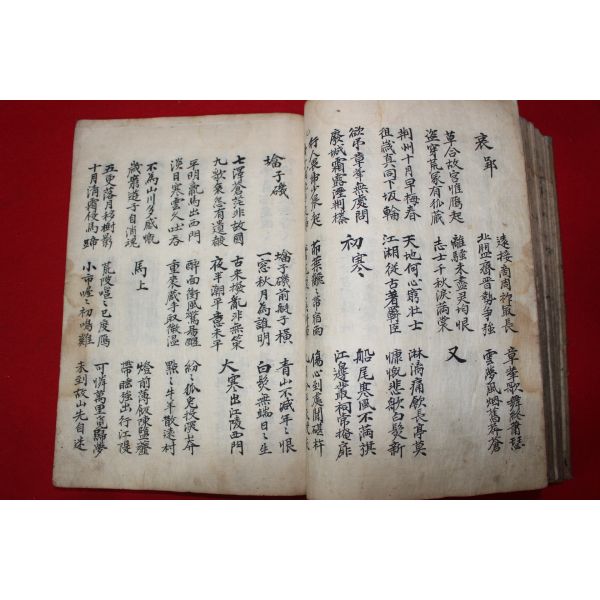 哀郢
遠接商周祚最長 章華歌舞終蕭瑟
北盟齊晉勢爭強 雲夢風烟舊莽蒼
草合故宮惟鴈起 離騷未盡靈均恨
盜穿荒冢有狐藏 志士千秋淚滿裳
又
荊州十月早梅春 天地何心窮壯士 淋漓痛飮長亭莫
徂歲眞同下坂輪 江湖從古著羈臣 慷慨悲歌白髮新
欲弔章華無處問
廢城霜露溼荊榛
初寒
船尾寒風不滿旗
江邊叢祠常掩扉
行人畏虎少晨起 茆葉翻〻帶宿雨 傷心到處聞砧杵
塔子磯
塔子磯前艇子橫 青山不減年〻恨
一窓秋月爲誰明 白髮無端日〻生
七澤蒼茫非故國 古來撥亂非無策
九歌哀怨有遺聲 夜半潮平意未平
大寒出江陵西門
平明羸馬出西門 醉面衝風驚易醒 紛〻狐兔投深莽
淡日寒雲久吐呑 重裘藏手取微溫 點〻牛羊散遠村
不爲山川多感慨
歲窮遊子自消魂
馬上
燈前薄飯陳鹽虀
帶睡強出行江堤
五更落月移樹影 荒陂嗈〻已度鴈 可憐萬里覓歸夢
十月淸霜侵馬蹄 小市喔〻初鳴雞 未到故山先自迷